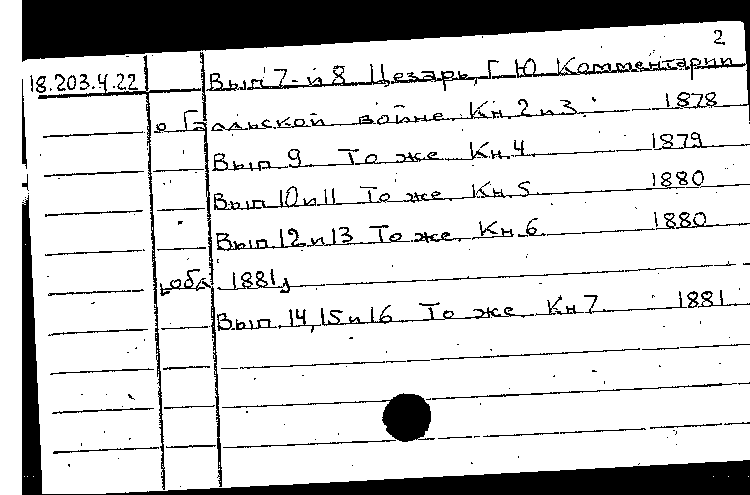 2
18.203.4.22 Вып 7-и 8. Цезарь, Г Ю Комментарии
о Галльской войне. Кн. 2 и 3. 1878
Вып 9. То же Кн. 4. 1879
Вып 10 и 11 То же. Кн. 5 1880
Вып. 12 и 13 То же. Кн. 6 1880
[обл. 1881]
Вып. 14, 15 и 16 То же Кн 7 1881